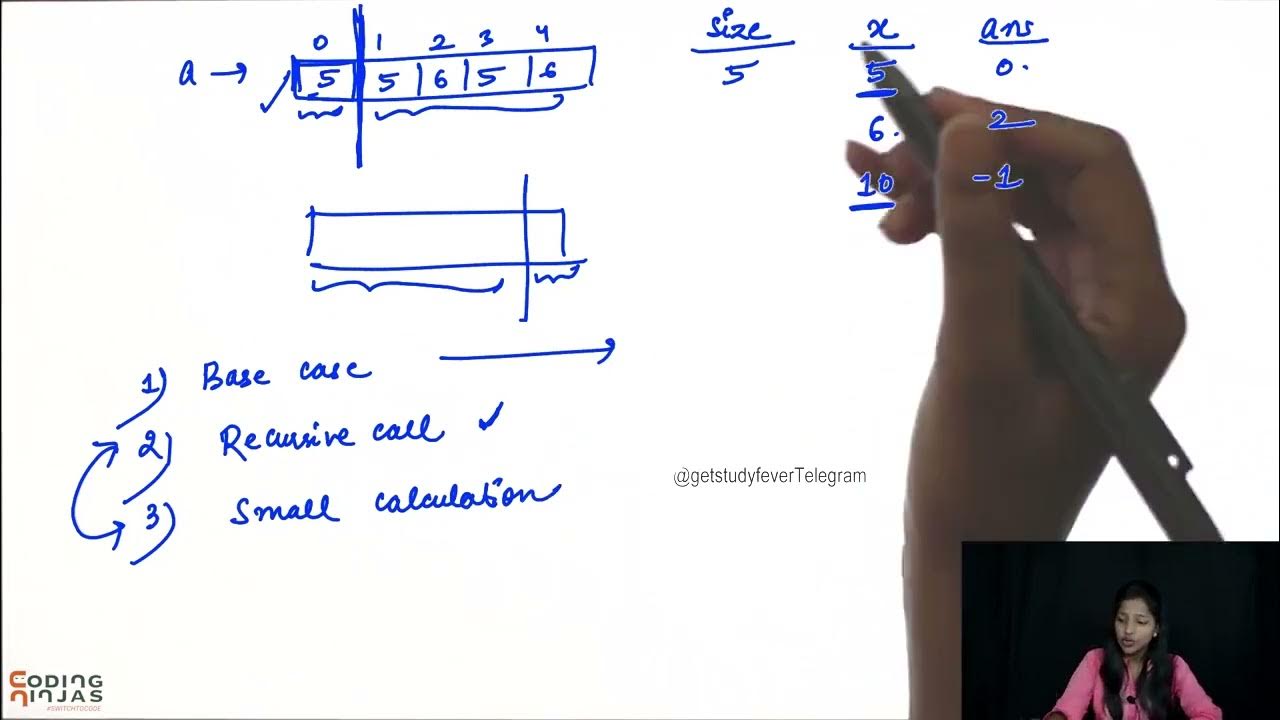 size x ans
0 1 2 3 4
a → 5 5 6 5 6
5 5 0.
6. 2
10 -1
1) Base case
2) Recursive call ✓
3) Small calculation
@getstudyfeverTelegram
CODING
NINJAS
#SWITCHTOCODE